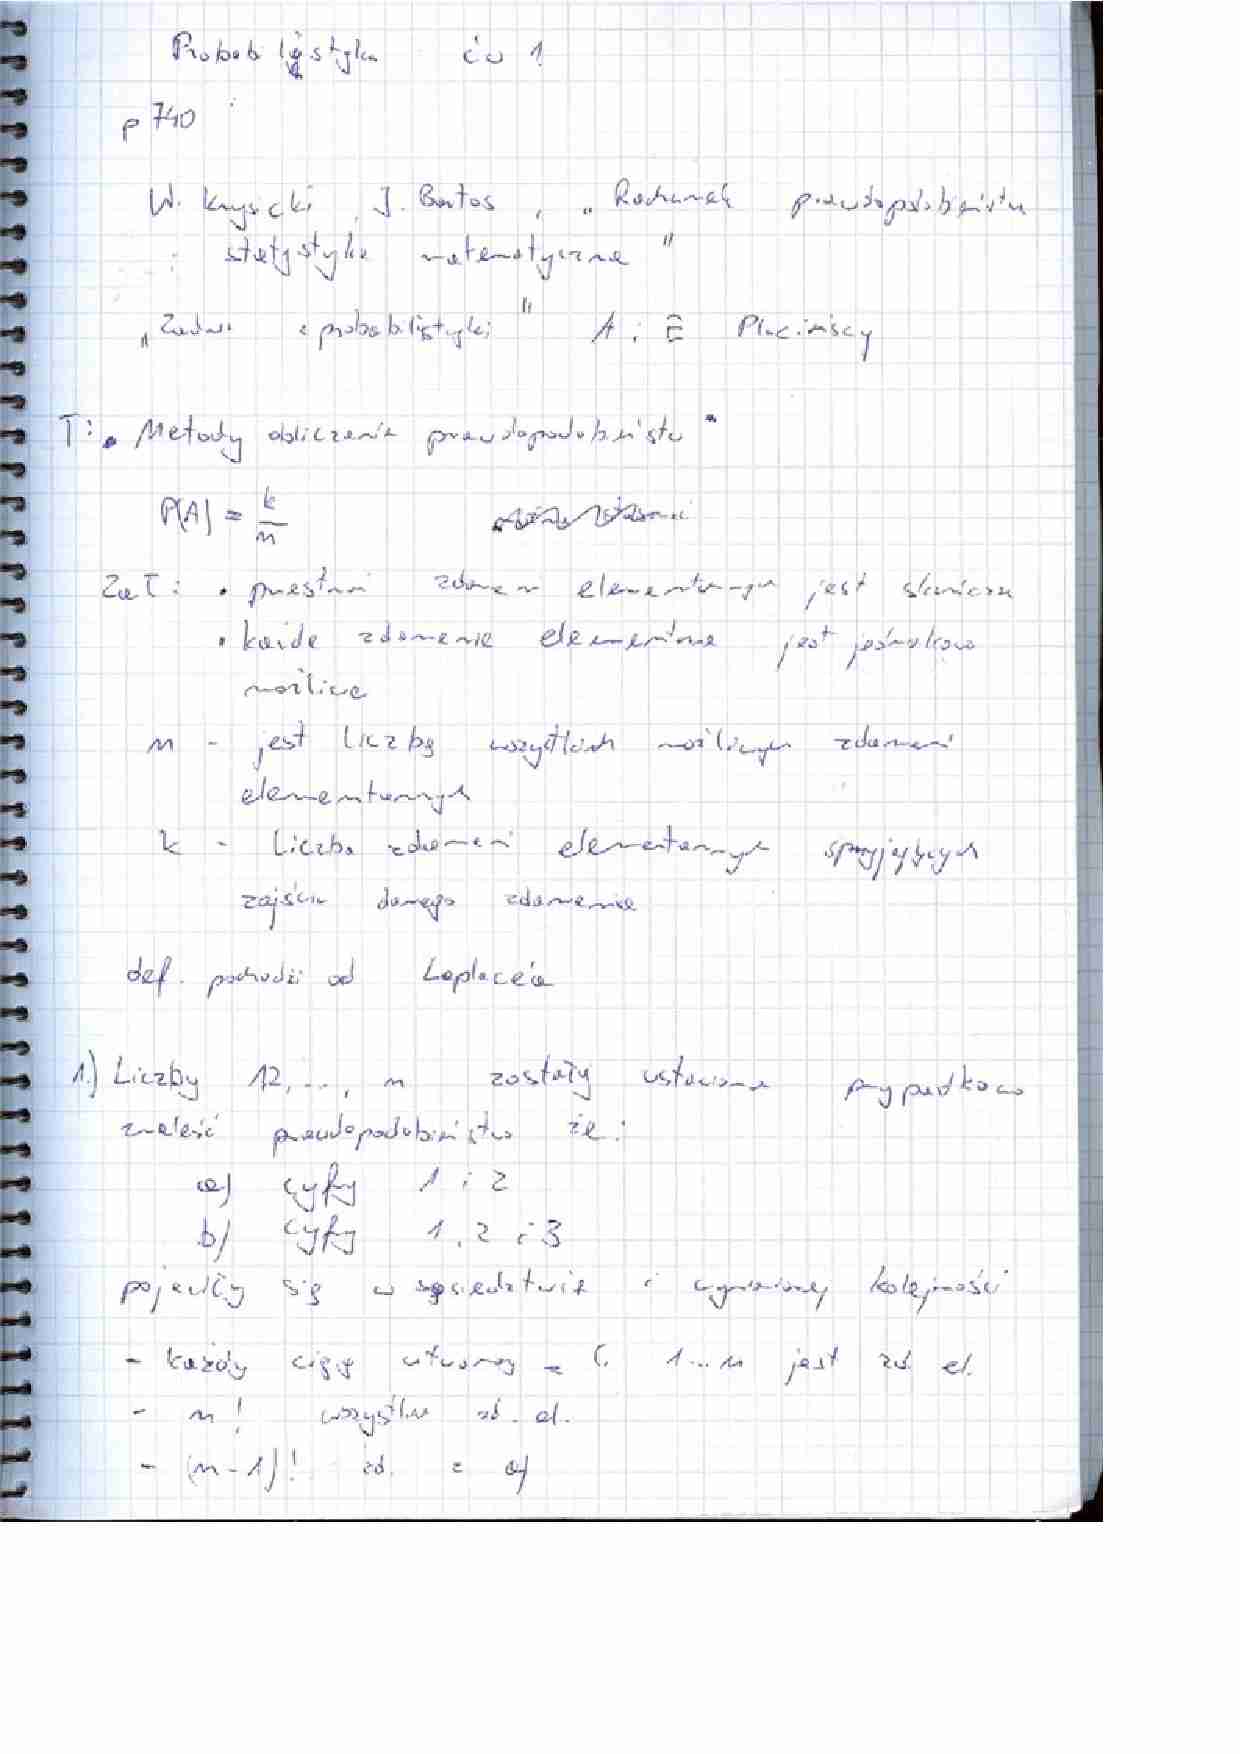 Probabilistyka ćw 1
p 740
W. Krysicki, J. Bartos, „Rachunek prawdopodobieństwa
i statystyka matematyczna"
„Zadania z probabilistyki" A i E Plucińscy
T: • Metody obliczania prawdopodobieństw •
P(A) = k/n
Zał: • przestrzeń zdarzeń elementarnych jest skończona
• każde zdarzenie elementarne jest jednakowo
możliwe
n - jest liczbą wszystkich możliwych zdarzeń
elementarnych
k - liczba zdarzeń elementarnych sprzyjających
zajściu danego zdarzenia
def. pochodzi od Laplace'a
1.) Liczby 1,2,..., n zostały ustawione przypadkowo
znaleść prawdopodobieństwo że:
a) cyfry 1 i 2
b) cyfry 1, 2 i 3
pojawiły się w sąsiedztwie i wymienionej kolejności
- każdy ciąg utworzony z 1...n jest zd. el.
- n! wszystkie zd. el.
- (n-1)! zd. z a)